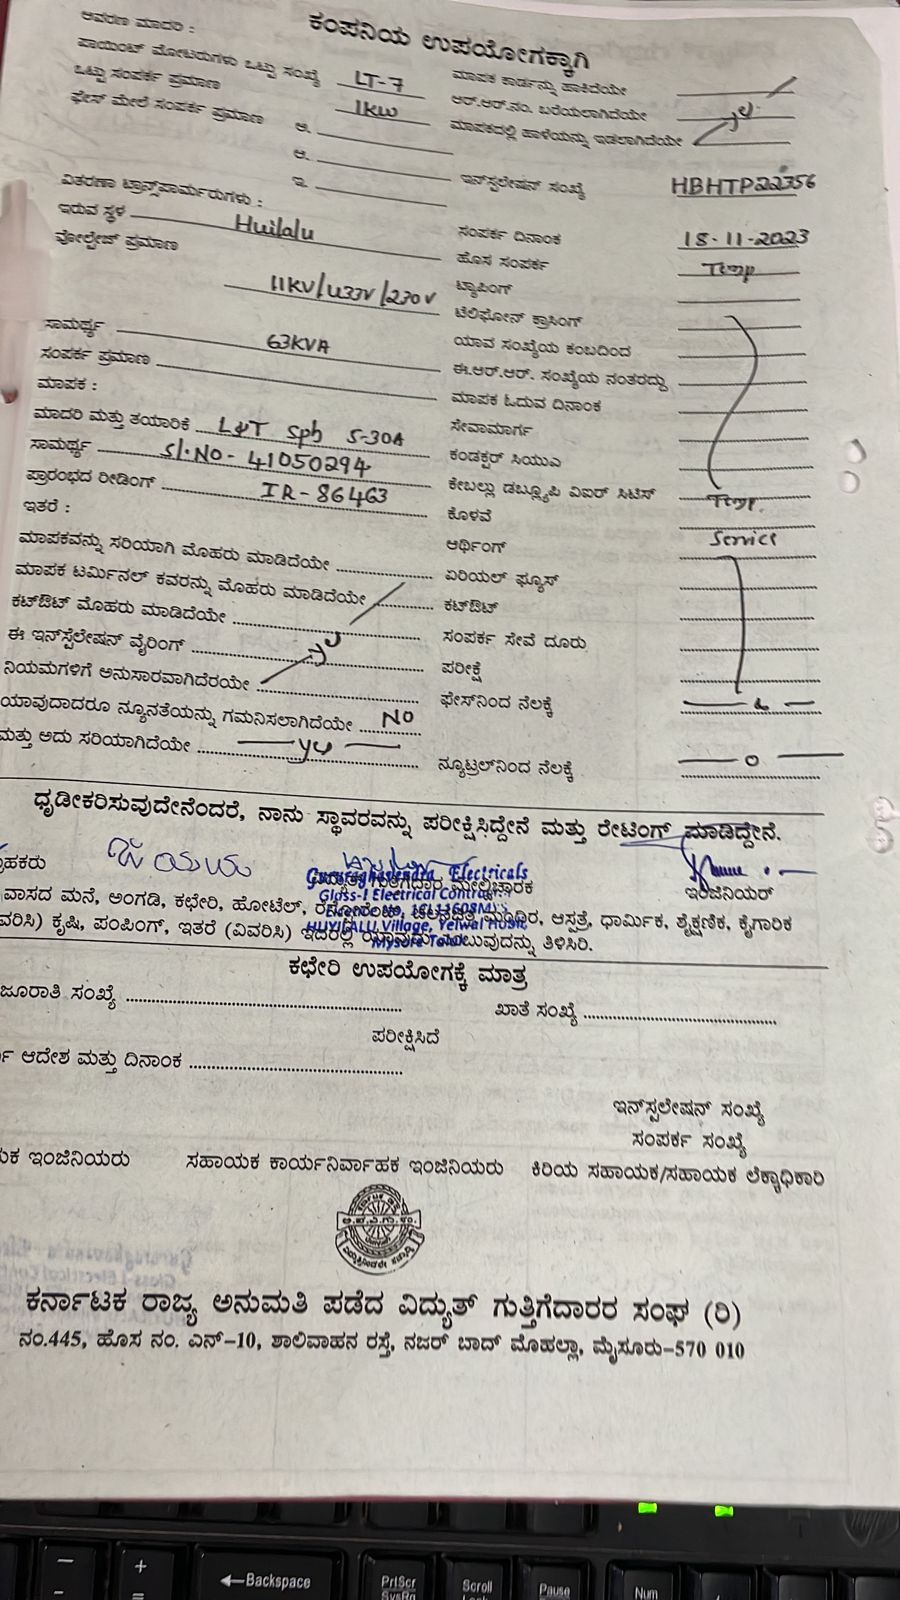 ಕಂಪನಿಯ ಉಪಯೋಗಕ್ಕಾಗಿ
ಆವರಣ ಮಾದರಿ :
ಪಾಯಿಂಟ್ ಮೋಟರುಗಳು ಒಟ್ಟು ಸಂಖ್ಯೆ LT-7
ಒಟ್ಟು ಸಂಪರ್ಕ ಪ್ರಮಾಣ 1KW
ಫೇಸ್ ಮೇಲೆ ಸಂಪರ್ಕ ಪ್ರಮಾಣ ಅ.
ಆ.
ಇ.
ವಿತರಣಾ ಟ್ರಾನ್ಸ್‌ಫಾರ್ಮರುಗಳು :
ಇರುವ ಸ್ಥಳ Huilalu
ವೋಲ್ಟೇಜ್ ಪ್ರಮಾಣ
11KV/433V/230V
ಸಾಮರ್ಥ್ಯ 63KVA
ಸಂಪರ್ಕ ಪ್ರಮಾಣ
ಮಾಪಕ :
ಮಾದರಿ ಮತ್ತು ತಯಾರಿಕೆ L&T Sph 5-30A
ಸಾಮರ್ಥ್ಯ Sl.No- 41050294
ಪ್ರಾರಂಭದ ರೀಡಿಂಗ್ IR-86463
ಇತರೆ :
ಮಾಪಕವನ್ನು ಸರಿಯಾಗಿ ಮೊಹರು ಮಾಡಿದೆಯೇ
ಮಾಪಕ ಟರ್ಮಿನಲ್ ಕವರನ್ನು ಮೊಹರು ಮಾಡಿದೆಯೇ
ಕಟ್‌ಔಟ್ ಮೊಹರು ಮಾಡಿದೆಯೇ
ಈ ಇನ್‌ಸ್ಟಲೇಷನ್ ವೈರಿಂಗ್
ನಿಯಮಗಳಿಗೆ ಅನುಸಾರವಾಗಿದೆರಯೇ
ಯಾವುದಾದರೂ ನ್ಯೂನತೆಯನ್ನು ಗಮನಿಸಲಾಗಿದೆಯೇ NO
ಮತ್ತು ಅದು ಸರಿಯಾಗಿದೆಯೇ
ಮಾಪಕ ಕಾರ್ಡನ್ನು ಹಾಕಿದೆಯೇ
ಆರ್.ಆರ್.ನಂ. ಬರೆಯಲಾಗಿದೆಯೇ
ಮಾಪಕದಲ್ಲಿ ಹಾಳೆಯನ್ನು ಇಡಲಾಗಿದೆಯೇ
ಇನ್‌ಸ್ಟಲೇಷನ ಸಂಖ್ಯೆ HBHTP22356
ಸಂಪರ್ಕ ದಿನಾಂಕ 18-11-2023
ಹೊಸ ಸಂಪರ್ಕ Temp
ಟ್ಯಾಪಿಂಗ್
ಟೆಲಿಫೋನ್ ಕ್ರಾಸಿಂಗ್
ಯಾವ ಸಂಖ್ಯೆಯ ಕಂಬದಿಂದ
ಈ.ಆರ್.ಆರ್. ಸಂಖ್ಯೆಯ ನಂತರದ್ದು
ಮಾಪಕ ಓದುವ ದಿನಾಂಕ
ಸೇವಾಮಾರ್ಗ
ಕಂಡಕ್ಟರ್ ಸಿಯುಎ
ಕೇಬಲ್ಲು ಡಬ್ಲ್ಯೂಪಿ ವಿಐರ್ ಸಿಟಿಸ್ Temp.
ಕೊಳವೆ Service
ಆರ್ಥಿಂಗ್
ಏರಿಯಲ್ ಫ್ಯೂಸ್
ಕಟ್‌ಔಟ್
ಸಂಪರ್ಕ ಸೇವೆ ದೂರು
ಪರೀಕ್ಷೆ
ಫೇಸ್‌ನಿಂದ ನೆಲಕ್ಕೆ
ನ್ಯೂಟ್ರಲ್‌ನಿಂದ ನೆಲಕ್ಕೆ
ಧೃಡೀಕರಿಸುವುದೇನೆಂದರೆ, ನಾನು ಸ್ಥಾವರವನ್ನು ಪರೀಕ್ಷಿಸಿದ್ದೇನೆ ಮತ್ತು ರೇಟಿಂಗ್ ಮಾಡಿದ್ದೇನೆ.
ಹಕರು ಮೇಲ್ವಿಚಾರಕ ಇಂಜಿನಿಯರ್
Gururaghavendra Electricals
Class-I Electrical Contractor
HUYILALU Village, Yelwal Hobli,
ವಾಸದ ಮನೆ, ಅಂಗಡಿ, ಕಛೇರಿ, ಹೋಟೆಲ್, ಮಂದಿರ, ಆಸ್ಪತ್ರೆ, ಧಾರ್ಮಿಕ, ಶೈಕ್ಷಣಿಕ, ಕೈಗಾರಿಕ
ವಿವರಿಸಿ) ಕೃಷಿ, ಪಂಪಿಂಗ್, ಇತರೆ (ವಿವರಿಸಿ) ಇದರಲ್ಲಿ ಎಂಬುವುದನ್ನು ತಿಳಿಸಿರಿ.
ಕಛೇರಿ ಉಪಯೋಗಕ್ಕೆ ಮಾತ್ರ
ಜೂರಾತಿ ಸಂಖ್ಯೆ ಖಾತೆ ಸಂಖ್ಯೆ
ಪರೀಕ್ಷಿಸಿದೆ
ಆದೇಶ ಮತ್ತು ದಿನಾಂಕ
ಇನ್‌ಸ್ಟಲೇಷನ್ ಸಂಖ್ಯೆ
ಸಂಪರ್ಕ ಸಂಖ್ಯೆ
ಯಕ ಇಂಜಿನಿಯರು ಸಹಾಯಕ ಕಾರ್ಯನಿರ್ವಾಹಕ ಇಂಜಿನಿಯರು ಕಿರಿಯ ಸಹಾಯಕ/ಸಹಾಯಕ ಲೆಕ್ಕಾಧಿಕಾರಿ
ಕರ್ನಾಟಕ ರಾಜ್ಯ ಅನುಮತಿ ಪಡೆದ ವಿದ್ಯುತ್ ಗುತ್ತಿಗೆದಾರರ ಸಂಘ (ರಿ)
ನಂ.445, ಹೊಸ ನಂ. ಎನ್-10, ಶಾಲಿವಾಹನ ರಸ್ತೆ, ನಜರ್ ಬಾದ್ ಮೊಹಲ್ಲಾ, ಮೈಸೂರು-570 010
Backspace
PrtScr
SysRq
Scroll
Pause
Num